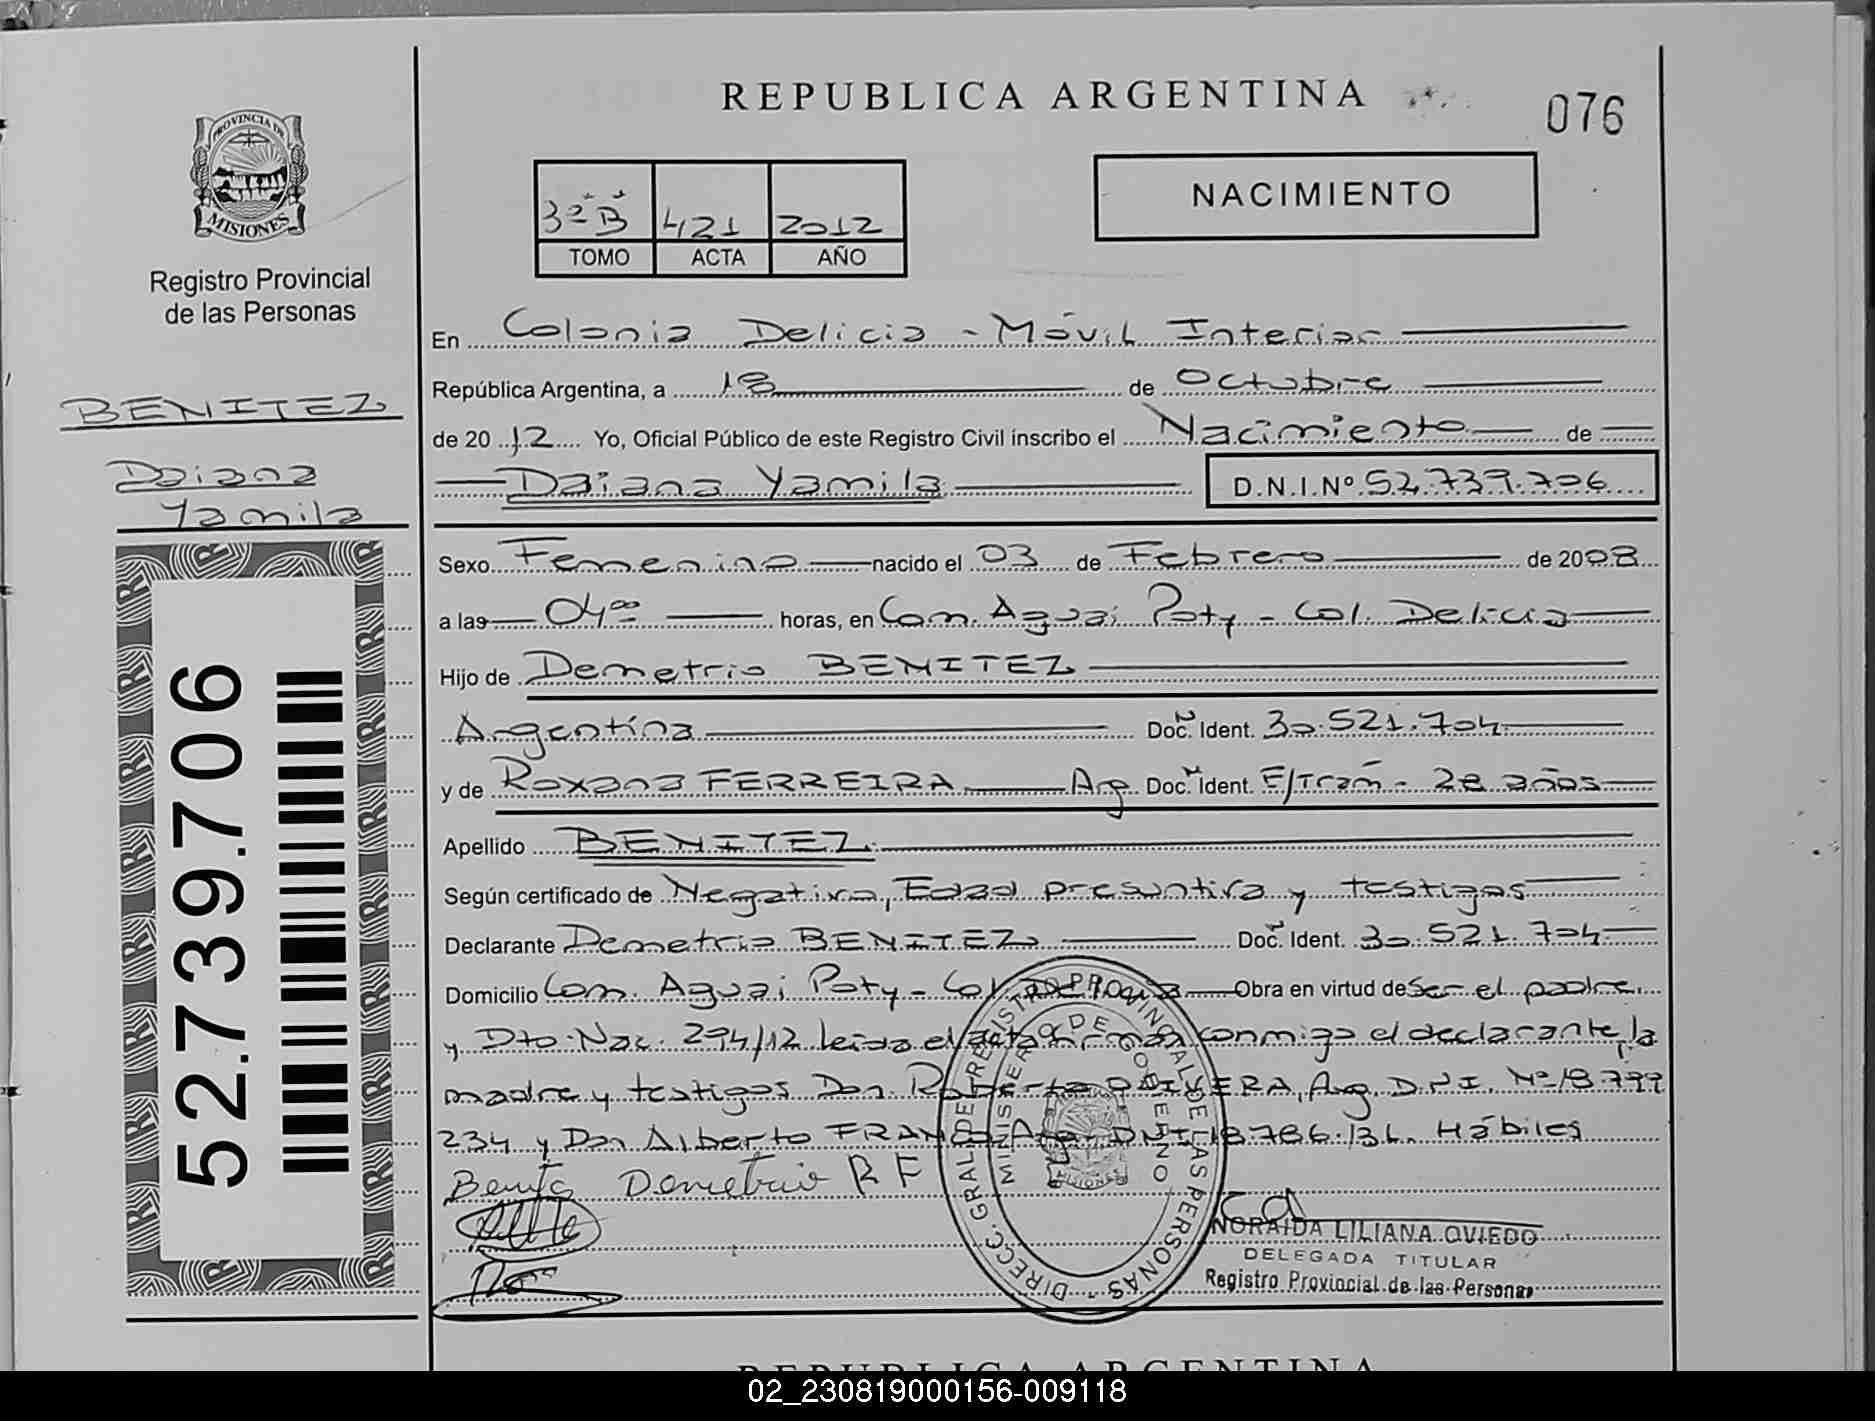 REPUBLICA ARGENTINA
076
PROVINCIA DE
MISIONES
Registro Provincial
de las Personas
3º B 421 2012
TOMO ACTA AÑO
NACIMIENTO
En Colonia Delicia - Móvil Interior
República Argentina, a 18 de Octubre
de 2012 Yo, Oficial Público de este Registro Civil inscribo el Nacimiento de
Daiana Yamila D.N.I.Nº 52.739.706
BENITEZ
Daiana
Yamila
52.739.706
Sexo Femenino nacido el 03 de Febrero de 2008
a las 04 00 horas, en Com. Aguai Poty - Col. Delicia
Hijo de Demetrio BENITEZ
Argentina Doc. Ident. 30.521.704
y de Roxana FERREIRA Arg. Doc. Ident. E/Trám - 28 años
Apellido BENITEZ
Según certificado de Negativa, Edad presuntiva y testigos
Declarante Demetrio BENITEZ Doc. Ident. 30.521.704
Domicilio Com. Aguai Poty - Col. Obra en virtud de Ser el padre
y Dto. Nac. 294/12 leida el acta firman conmigo el declarante, la
madre y testigos Don Roberto Arg. D.N.I. Nº 18.799
234 y Don Alberto Arg. DNI 18.786.136. Hábiles
Benite Demetrio R F
DIRECC. GRAL. DE REGISTRO PROVINCIAL DE LAS PERSONAS
MINISTERIO DE GOBIERNO
MISIONES
NORAIDA LILIANA OVIEDO
DELEGADA TITULAR
Registro Provincial de las Personas
REPUBLICA ARGENTINA
02_230819000156-009118